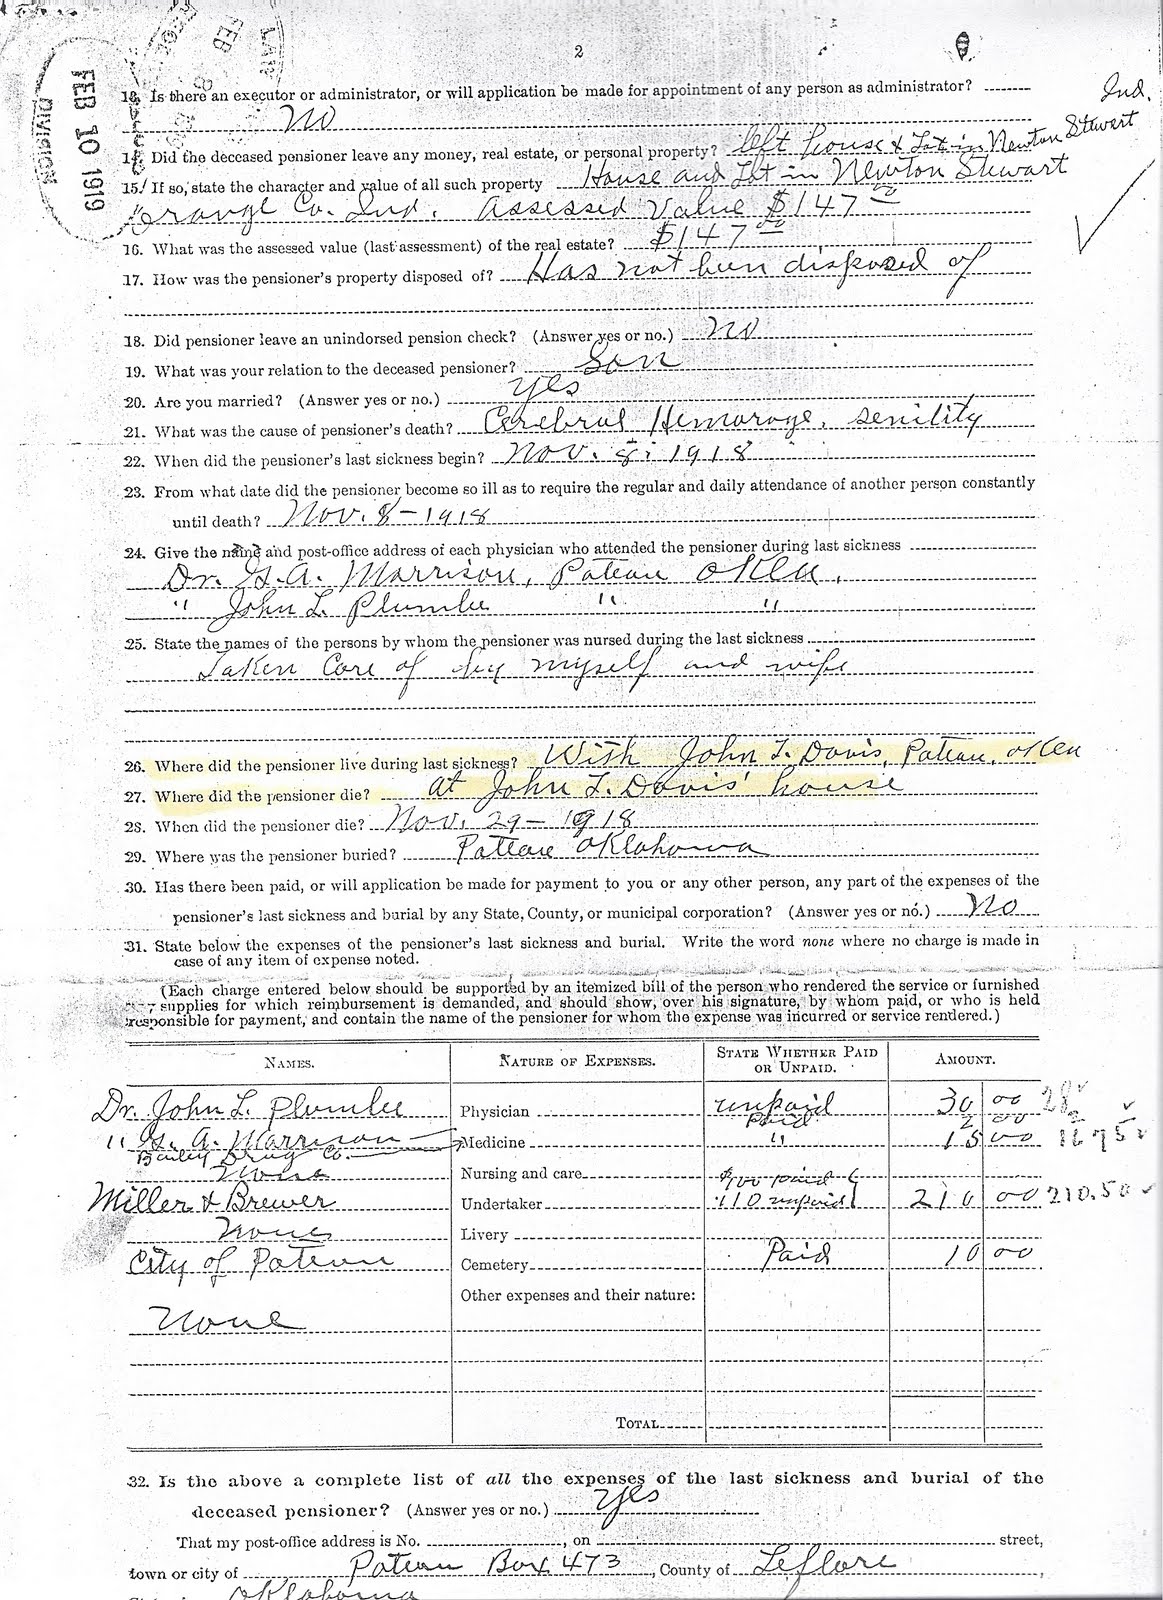 2
LAW
FEB 8
FEB 10 1919
DIVISION
Ind.
13. Is there an executor or administrator, or will application be made for appointment of any person as administrator?
No
14. Did the deceased pensioner leave any money, real estate, or personal property? left house & Lot in Newton Stewart
15. If so, state the character and value of all such property House and Lot in Newton Stewart
Orange Co. Ind. Assessed Value $147 00
16. What was the assessed value (last assessment) of the real estate? $147 00
17. How was the pensioner's property disposed of? Has not been disposed of
18. Did pensioner leave an unindorsed pension check? (Answer yes or no.) No
19. What was your relation to the deceased pensioner? Son
20. Are you married? (Answer yes or no.) yes
21. What was the cause of pensioner's death? Cerebral Hemorage, senility
22. When did the pensioner's last sickness begin? Nov. 8. 1918
23. From what date did the pensioner become so ill as to require the regular and daily attendance of another person constantly
until death? Nov. 8 - 1918
24. Give the name and post-office address of each physician who attended the pensioner during last sickness
Dr. G. A. Morrison, Poteau Okla.
" John L. Plumlee " "
25. State the names of the persons by whom the pensioner was nursed during the last sickness
Taken Care of by myself and wife
26. Where did the pensioner live during last sickness? With John T. Davis, Poteau, Okla
27. Where did the pensioner die? at John T. Davis' house
28. When did the pensioner die? Nov. 29 - 1918
29. Where was the pensioner buried? Poteau Oklahoma
30. Has there been paid, or will application be made for payment to you or any other person, any part of the expenses of the
pensioner's last sickness and burial by any State, County, or municipal corporation? (Answer yes or no.) No
31. State below the expenses of the pensioner's last sickness and burial. Write the word none where no charge is made in
case of any item of expense noted.
(Each charge entered below should be supported by an itemized bill of the person who rendered the service or furnished
supplies for which reimbursement is demanded, and should show, over his signature, by whom paid, or who is held
responsible for payment, and contain the name of the pensioner for whom the expense was incurred or service rendered.)
NAMES. NATURE OF EXPENSES. STATE WHETHER PAID OR UNPAID. AMOUNT.
Dr. John L. Plumlee Physician unpaid 30 00 28
paid 2 00 2
" G. A. Morrison Medicine " 15 00 16 75
Bailey Drug Co.
None Nursing and care
Miller & Brewer Undertaker $100 paid 110 unpaid 210 00 210.50
None Livery
City of Poteau Cemetery Paid 10 00
Other expenses and their nature:
None
TOTAL
32. Is the above a complete list of all the expenses of the last sickness and burial of the
deceased pensioner? (Answer yes or no.) yes
That my post-office address is No. , on street,
town or city of Poteau Box 473, County of Leflore,
Oklahoma